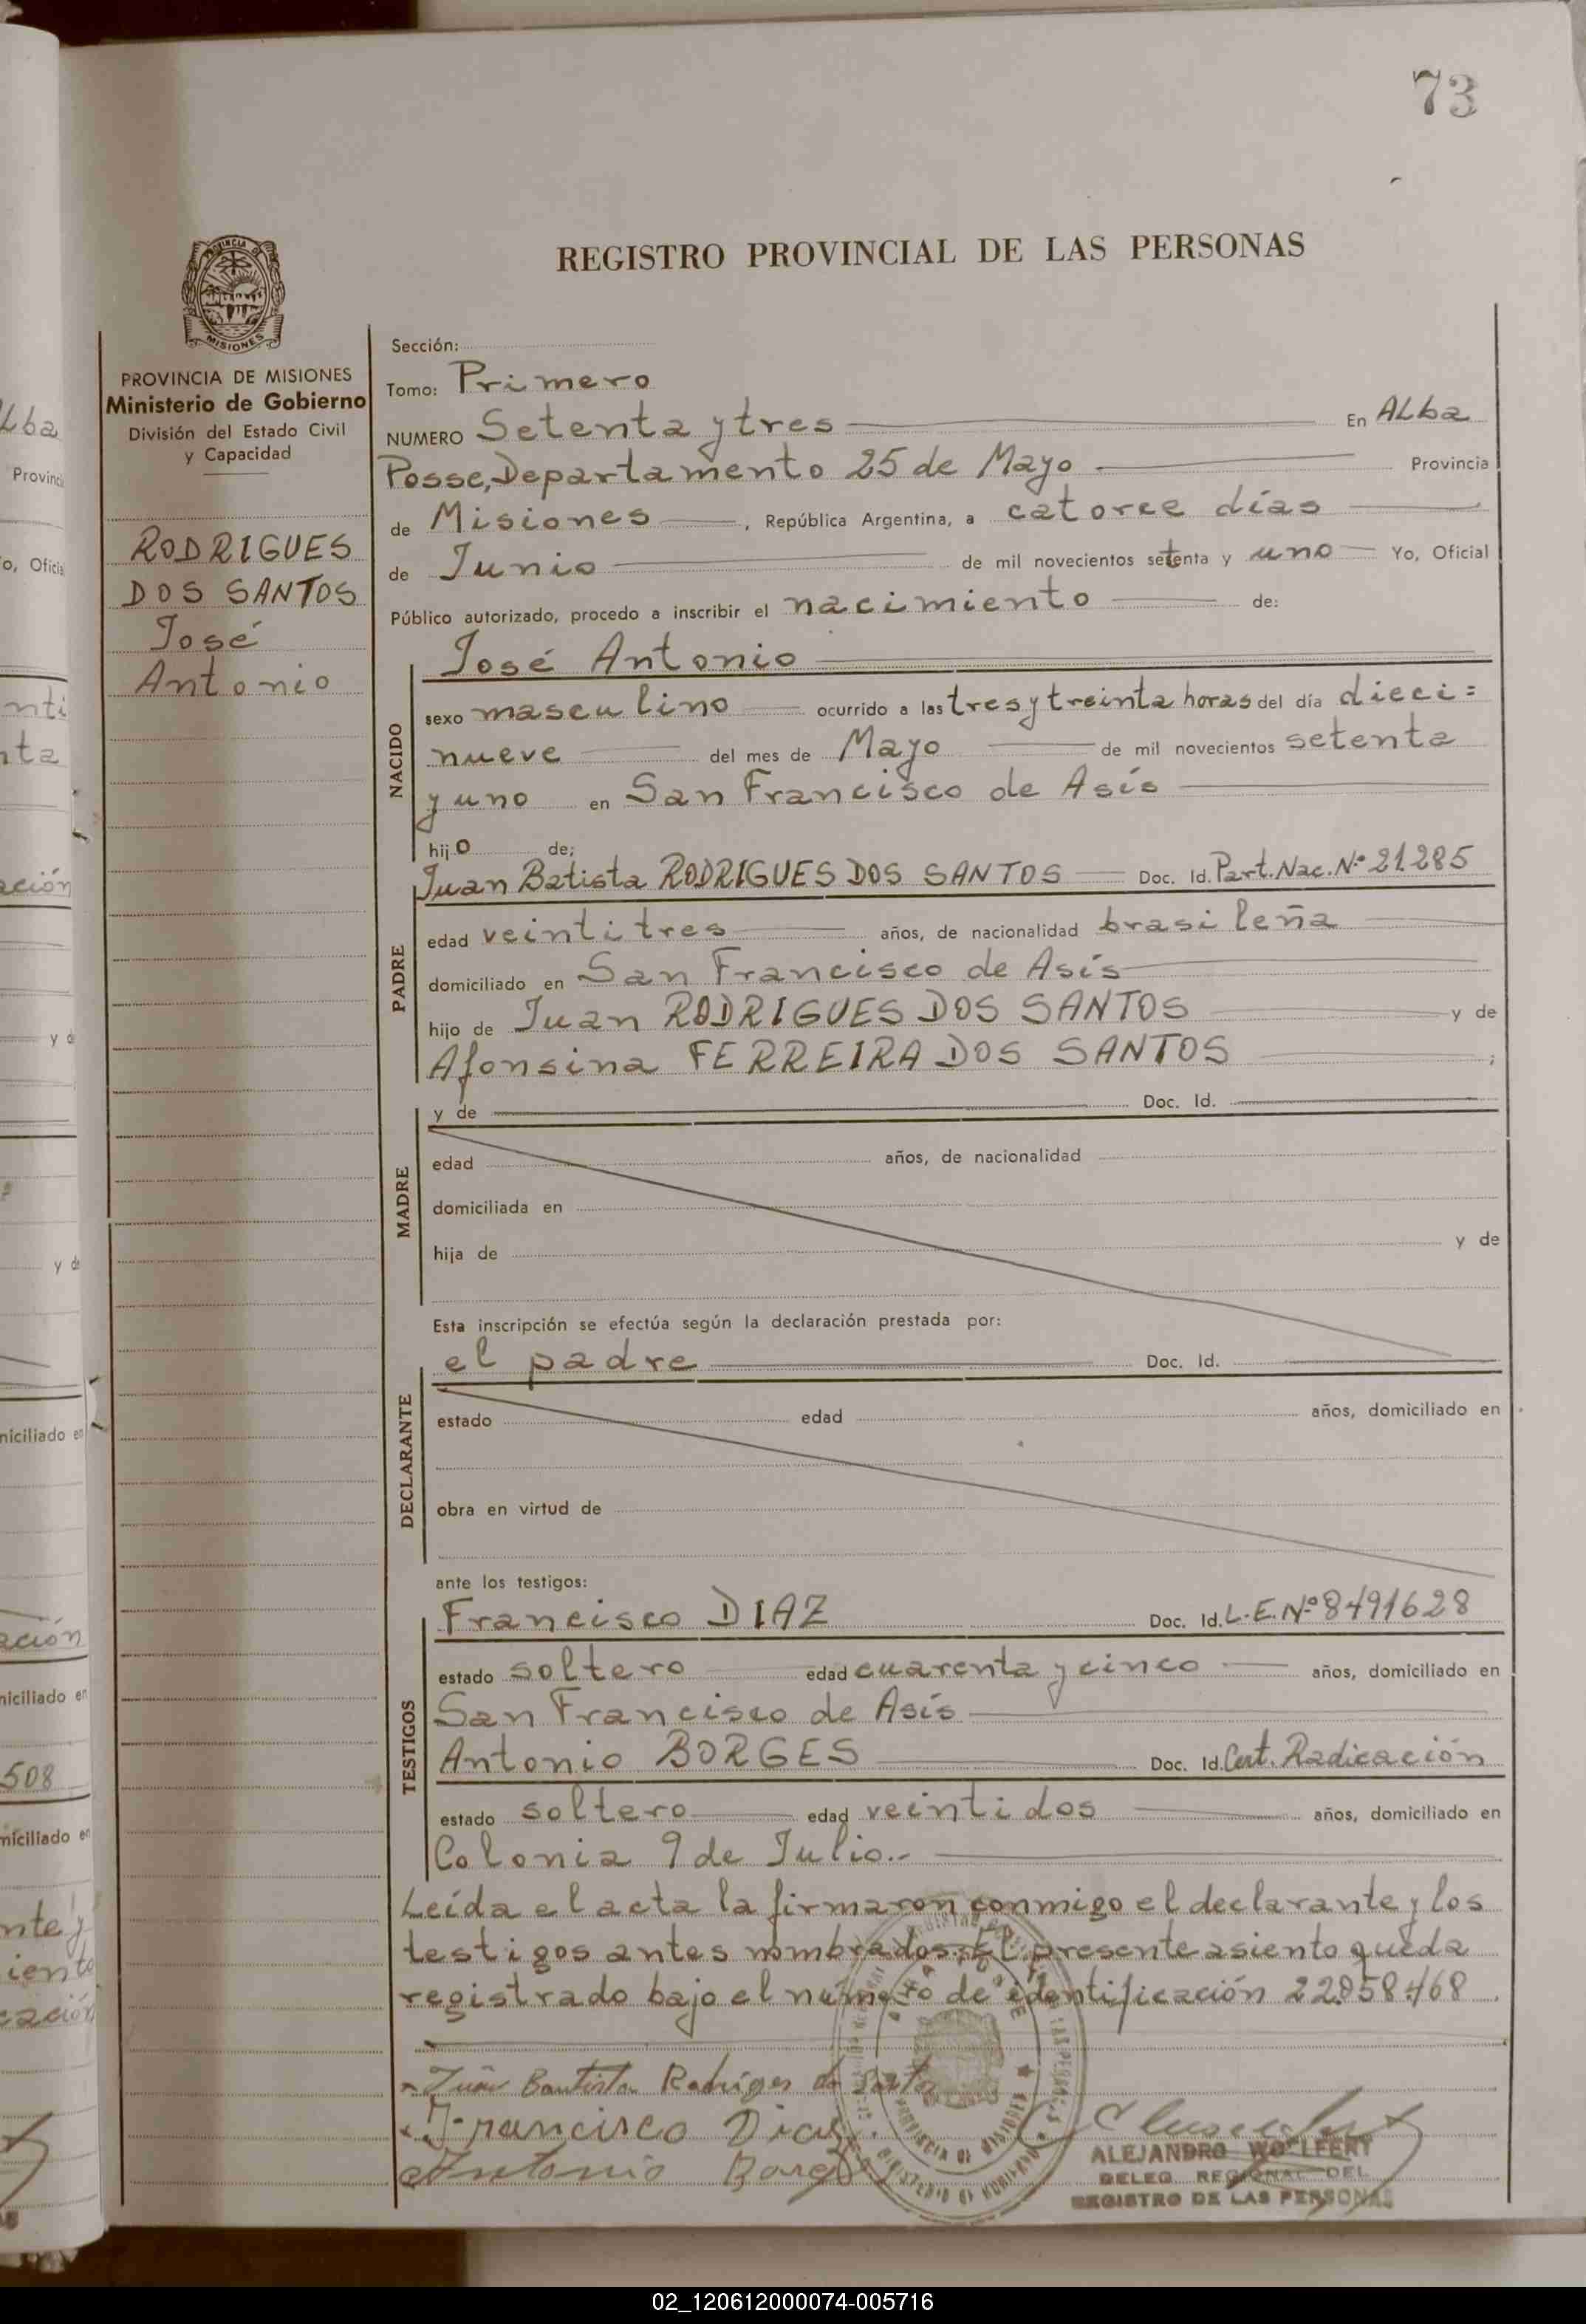 73
REGISTRO PROVINCIAL DE LAS PERSONAS
PROVINCIA DE
MISIONES
PROVINCIA DE MISIONES
Ministerio de Gobierno
División del Estado Civil
y Capacidad
RODRIGUES
DOS SANTOS
José
Antonio
Sección:
Tomo: Primero
NUMERO Setenta y tres En ALba
Posse, Departamento 25 de Mayo Provincia
de Misiones, República Argentina, a catorce días
de Junio de mil novecientos setenta y uno Yo, Oficial
Público autorizado, procedo a inscribir el nacimiento de:
José Antonio
NACIDO
sexo masculino ocurrido a las tres y treinta horas del día dieci=
nueve del mes de Mayo de mil novecientos setenta
y uno en San Francisco de Asís
hijo de:
Juan Batista RODRIGUES DOS SANTOS Doc. Id. Part. Nac. Nº 21285
PADRE
edad veintitres años, de nacionalidad brasileña
domiciliado en San Francisco de Asís
hijo de Juan RODRIGUES DOS SANTOS y de
Afonsina FERREIRA DOS SANTOS ;
MADRE
y de Doc. Id.
edad años, de nacionalidad
domiciliada en
hija de y de
Esta inscripción se efectúa según la declaración prestada por:
el padre Doc. Id.
DECLARANTE
estado edad años, domiciliado en
obra en virtud de
ante los testigos:
TESTIGOS
Francisco DIAZ Doc. Id. L.E. Nº 8491628
estado soltero edad cuarenta y cinco años, domiciliado en
San Francisco de Asís
Antonio BORGES Doc. Id. Cert. Radicación
estado soltero edad veintidos años, domiciliado en
Colonia 9 de Julio.-
Leída el acta la firmaron conmigo el declarante y los
testigos antes nombrados. El presente asiento queda
registrado bajo el número de identificación 22.858.468
Juan Bautista Rodrigues do
Francisco Dias
Antonio Borges
ALEJANDRO WOLFERT
DELEG. REGIONAL DEL
REGISTRO DE LAS PERSONAS
02_120612000074-005716